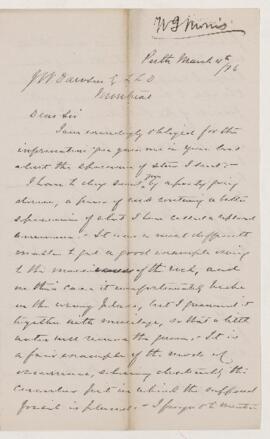 W J Morris
Perth March 4th
/76
J W Dawson Esq L L D
Montreal
Dear Sir
I am exceedingly obliged for the
information you gave me in your last
about the specimen of stone I sent. -
I have to day sent you by a party going
down, a piece of rock containing a better
specimen of what I have called a
It was a most difficult
matter to get a good example owing
to the massiveness of the rock, and
in this case it unfortunately broke
in the wrong place, but I gummed it
together with mucilage, so that a little
water will remove the gum. - It is
a fair example of the mode of
occurrence, shewing distinctly the
part in which the supposed
fossil is placed. - I forgot to mention